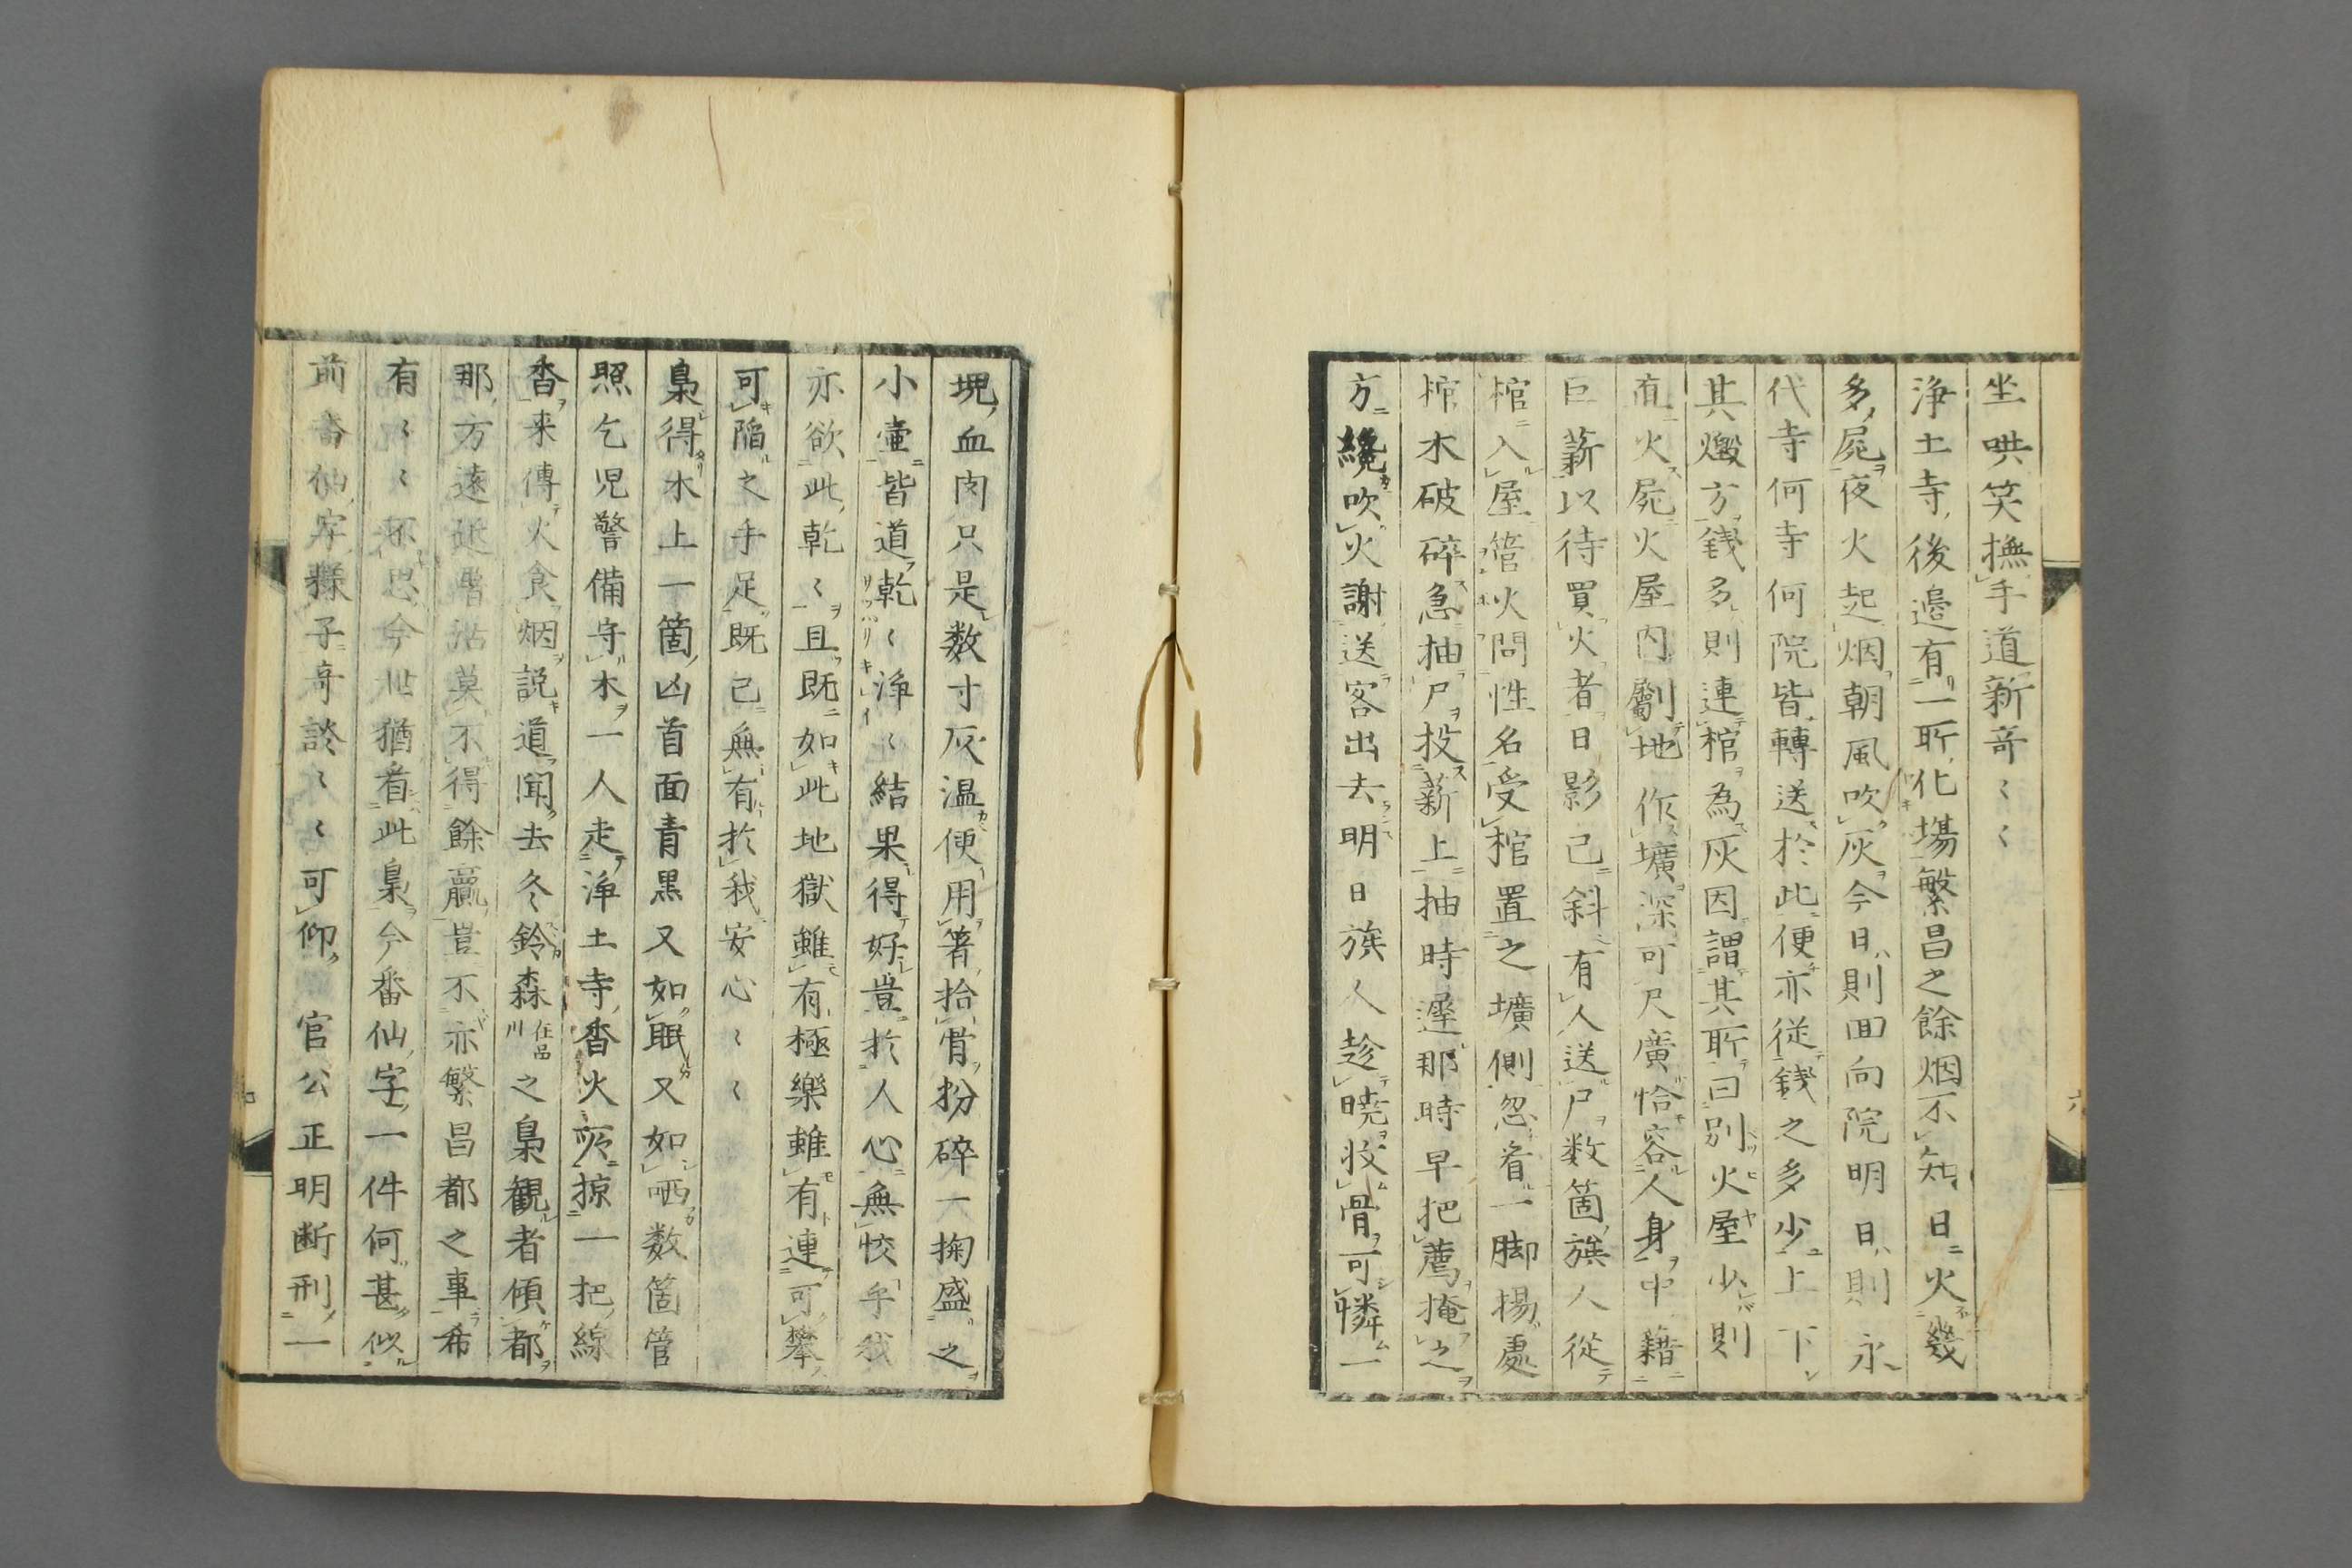 坐哄笑撫手道新奇〻〻
浄土寺後邉有一所化場繁昌之餘烟不知日火幾
多屍夜火起烟朝風吹灰今日則回向院明日則永
代寺何寺何院皆轉送於此便亦従錢之多少上下
其燬方錢多則連棺為灰因謂其所曰別火屋少則
直火屍火屋内劚地作壙深可尺廣恰容人身中藉
巨薪以待買火者日影已斜有人送尸数箇族人従
棺入屋管火問性名受棺置之壙側忽看一脚揚處
棺木破碎急抽尸投薪上抽時遅那時早把薦掩之
方纔吹火謝送客出去明日族人趁暁收骨可憐一
塊血肉只是数寸灰温便用箸拾骨扮碎一掬盛之
小壷皆道乾〻浄〻結果得好豈於人心無恔乎我
亦欲此乾〻且既如此地獄雖有極樂雖有連可攀
可陥之手足既已無有於我安心〻〻
梟得木上一箇凶首面青黒又如眠又如哂数箇管
照乞児警備守木一人走浄土寺香火掠一把線
香来傳火食烟説道聞去冬鈴森在品川之梟観者傾都
那方遠近 沽莫不得餘贏豈不亦繁昌都之事希
有〻〻 思今世猶看此梟今番仙字一件何甚似
前番仙 様子奇談〻〻可仰官公正明断刑一